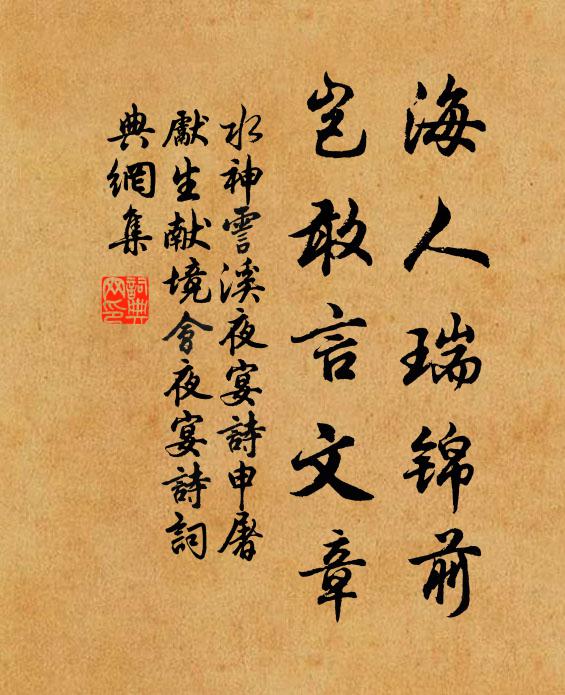 海人瑞锦前
岂敢言文章
水神雲溪夜宴詩申屠
獻生献境會夜宴詩詞
典網集
詞典
网印